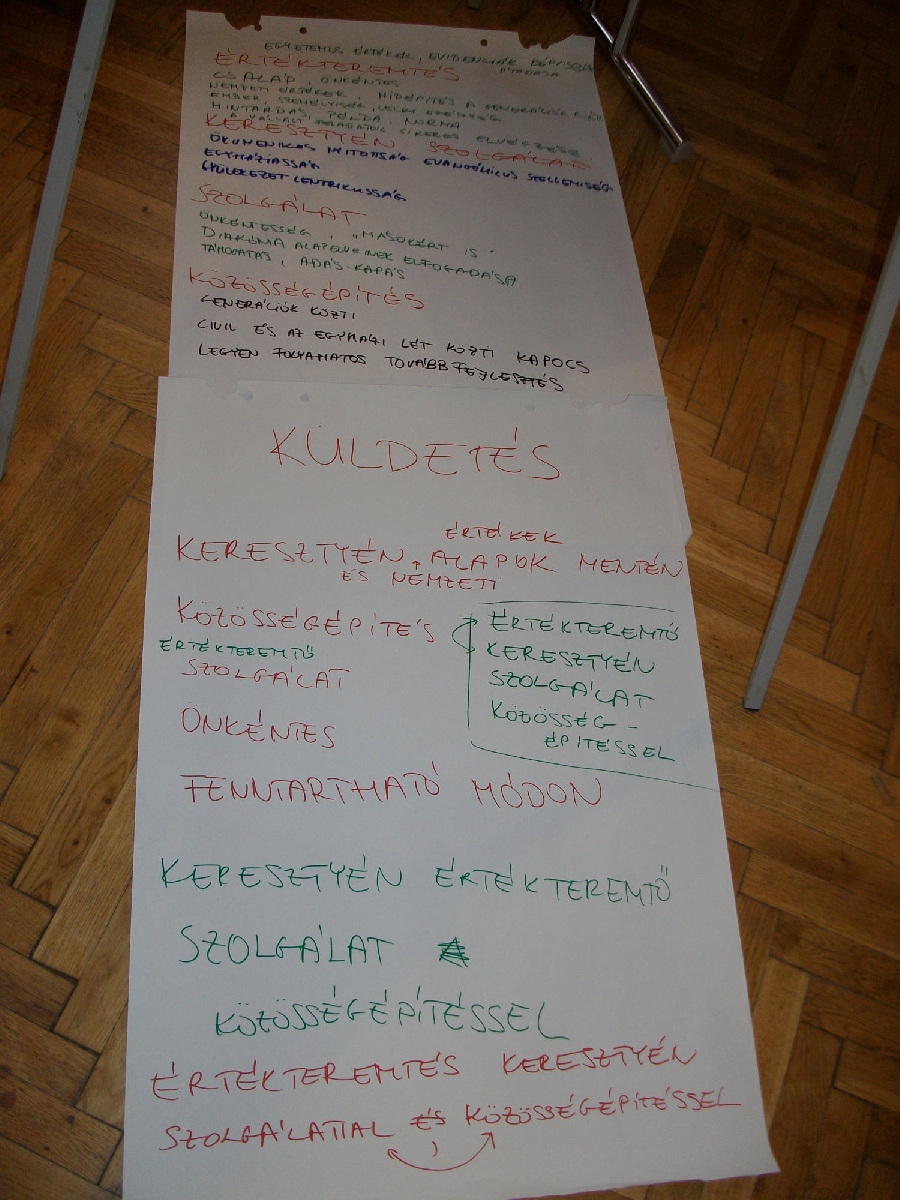 EGYETEMES ÉRTÉKEK, EVIDENCIÁK KÉPVISELETE
ÁTADÁSA
ÉRTÉKTEREMTÉS
CSALÁD, ÖNKÉNTES
NEMZETI ÉRTÉKEK, HÍDÉPÍTÉS A GENERÁCIÓK KÖZT
EMBER, SZEMÉLYISÉG, LELKI
MINTAADÁS, PÉLDA, NORMA
A VÁLLALT FELADATOK SIKERES ELVÉGZÉSE
KERESZTYÉN SZOLGÁLAT
ÖKUMENIKUS NYITOTTSÁG EVANGÉLIKUS SZELLEMISÉG
EGYHÁZIASSÁG
GYÜLEKEZET CENTRIKUSSÁG
SZOLGÁLAT
ÖNKÉNTESSÉG, „MÁSOKÉRT IS"
DIAKÓNIA ALAPELVEINEK ELFOGADÁSA
TÁMOGATÁS, ADÁS-KAPÁS
KÖZÖSSÉGÉPÍTÉS
GENERÁCIÓK KÖZTI
CIVIL ÉS AZ EGYHÁZI LÉT KÖZTI KAPOCS
LEGYEN FOLYAMATOS TOVÁBBFEJLESZTÉS
KÜLDETÉS
ÉRTÉKEK
KERESZTYÉN ALAPOK MENTÉN
ÉS NEMZETI
KÖZÖSSÉGÉPÍTÉS
ÉRTÉKTEREMTŐ
SZOLGÁLAT
ÉRTÉKTEREMTŐ
KERESZTYÉN
SZOLGÁLAT
KÖZÖSSÉG-
ÉPÍTÉSSEL
ÖNKÉNTES
FENNTARTHATÓ MÓDON
KERESZTYÉN ÉRTÉKTEREMTŐ
SZOLGÁLAT
KÖZÖSSÉGÉPÍTÉSSEL
ÉRTÉKTEREMTÉS KERESZTYÉN
SZOLGÁLATTAL ÉS, KÖZÖSSÉGÉPÍTÉSSEL